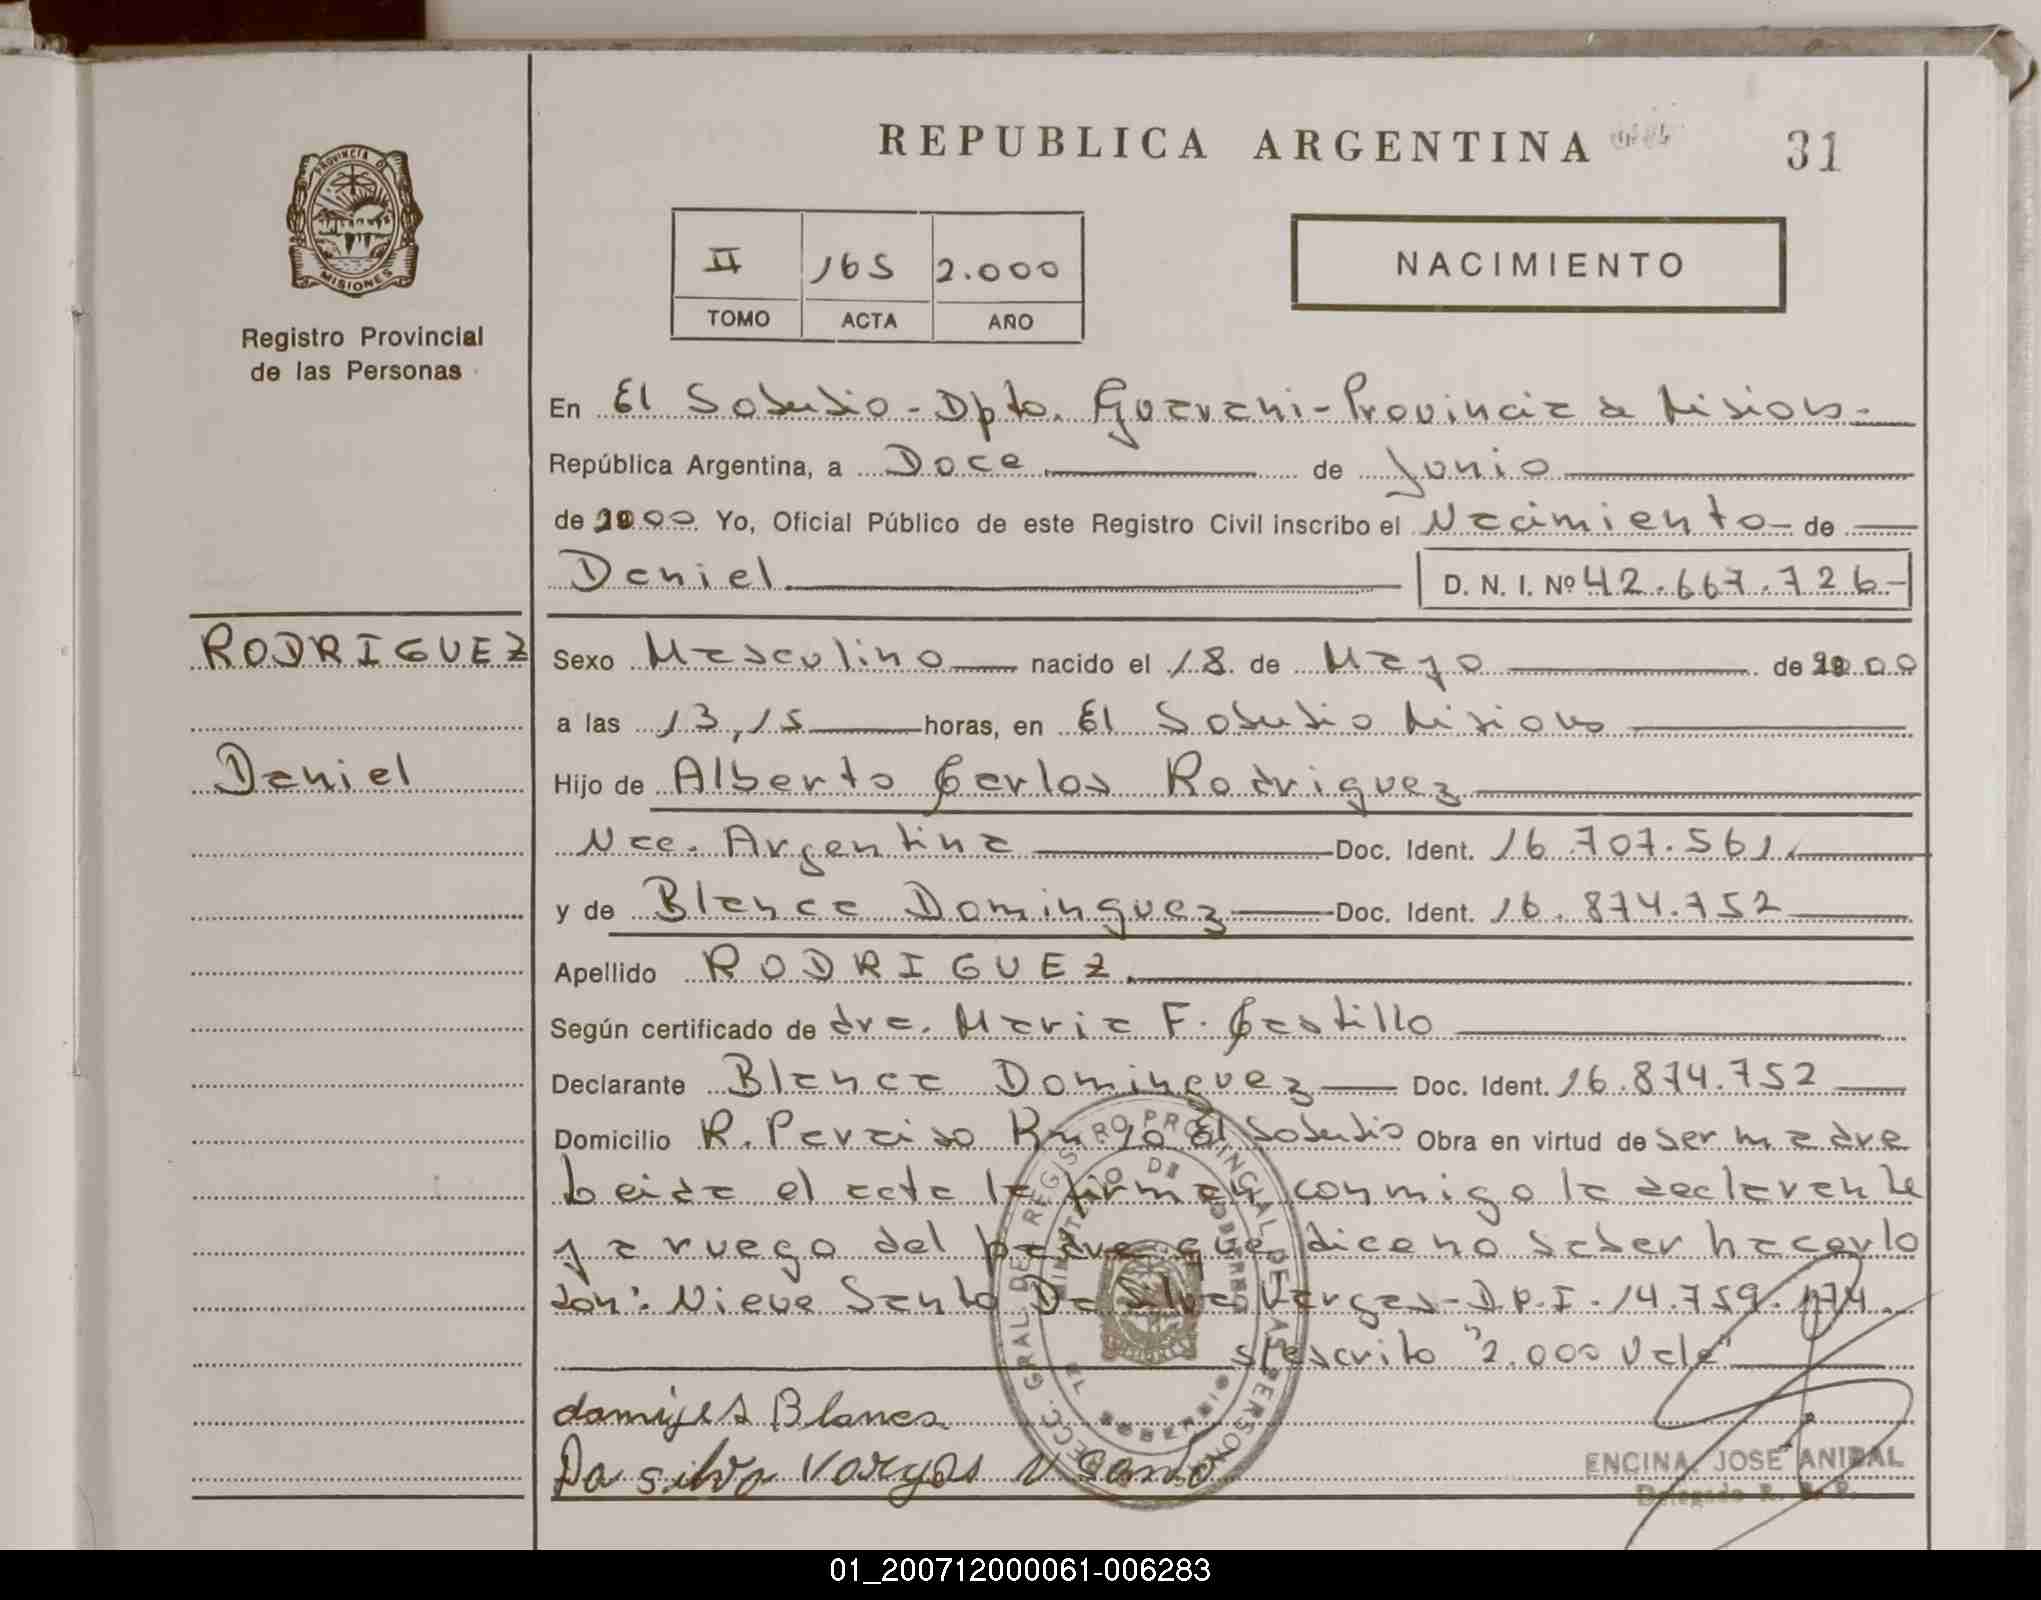 REPUBLICA ARGENTINA
31
PROVINCIA DE
MISIONES
Registro Provincial
de las Personas
II 165 2.000
TOMO ACTA AÑO
NACIMIENTO
En El Soberbio - Dpto. Guarani - Provincia de Misiones -
República Argentina, a Doce de Junio
de 2000 Yo, Oficial Público de este Registro Civil inscribo el Nacimiento - de
Daniel D. N. I. Nº 42.667.726-
RODRIGUEZ
Daniel
Sexo Masculino nacido el 18 de Mayo de 2000
a las 13,15 horas, en El Soberbio Misiones
Hijo de Alberto Carlos Rodriguez
Nac. Argentina Doc. Ident. 16.707.561.
y de Blanca Dominguez Doc. Ident. 16.874.752
Apellido RODRIGUEZ.
Según certificado de dra. Maria F. Castillo
Declarante Blanca Dominguez Doc. Ident. 16.874.752
Domicilio R. Paraiso Km 10 El Soberbio Obra en virtud de ser madre
Leida el acta la firman conmigo la declarante
y a ruego del padre que dice no saber hacerlo
don: Nieve Santo Da Silva Vargas - D.N.I. 14.759.174
s/escrito "2.000 Vale"
Blanca
Da silva Vargas N Santo
DIRECC. GRAL. DE REGISTRO PROVINCIAL DE LAS PERSONAS
MINISTERIO DE GOBIERNO
EL SOBERBIO
ENCINA, JOSE ANIBAL
Delegado R. P. P.
01_200712000061-006283